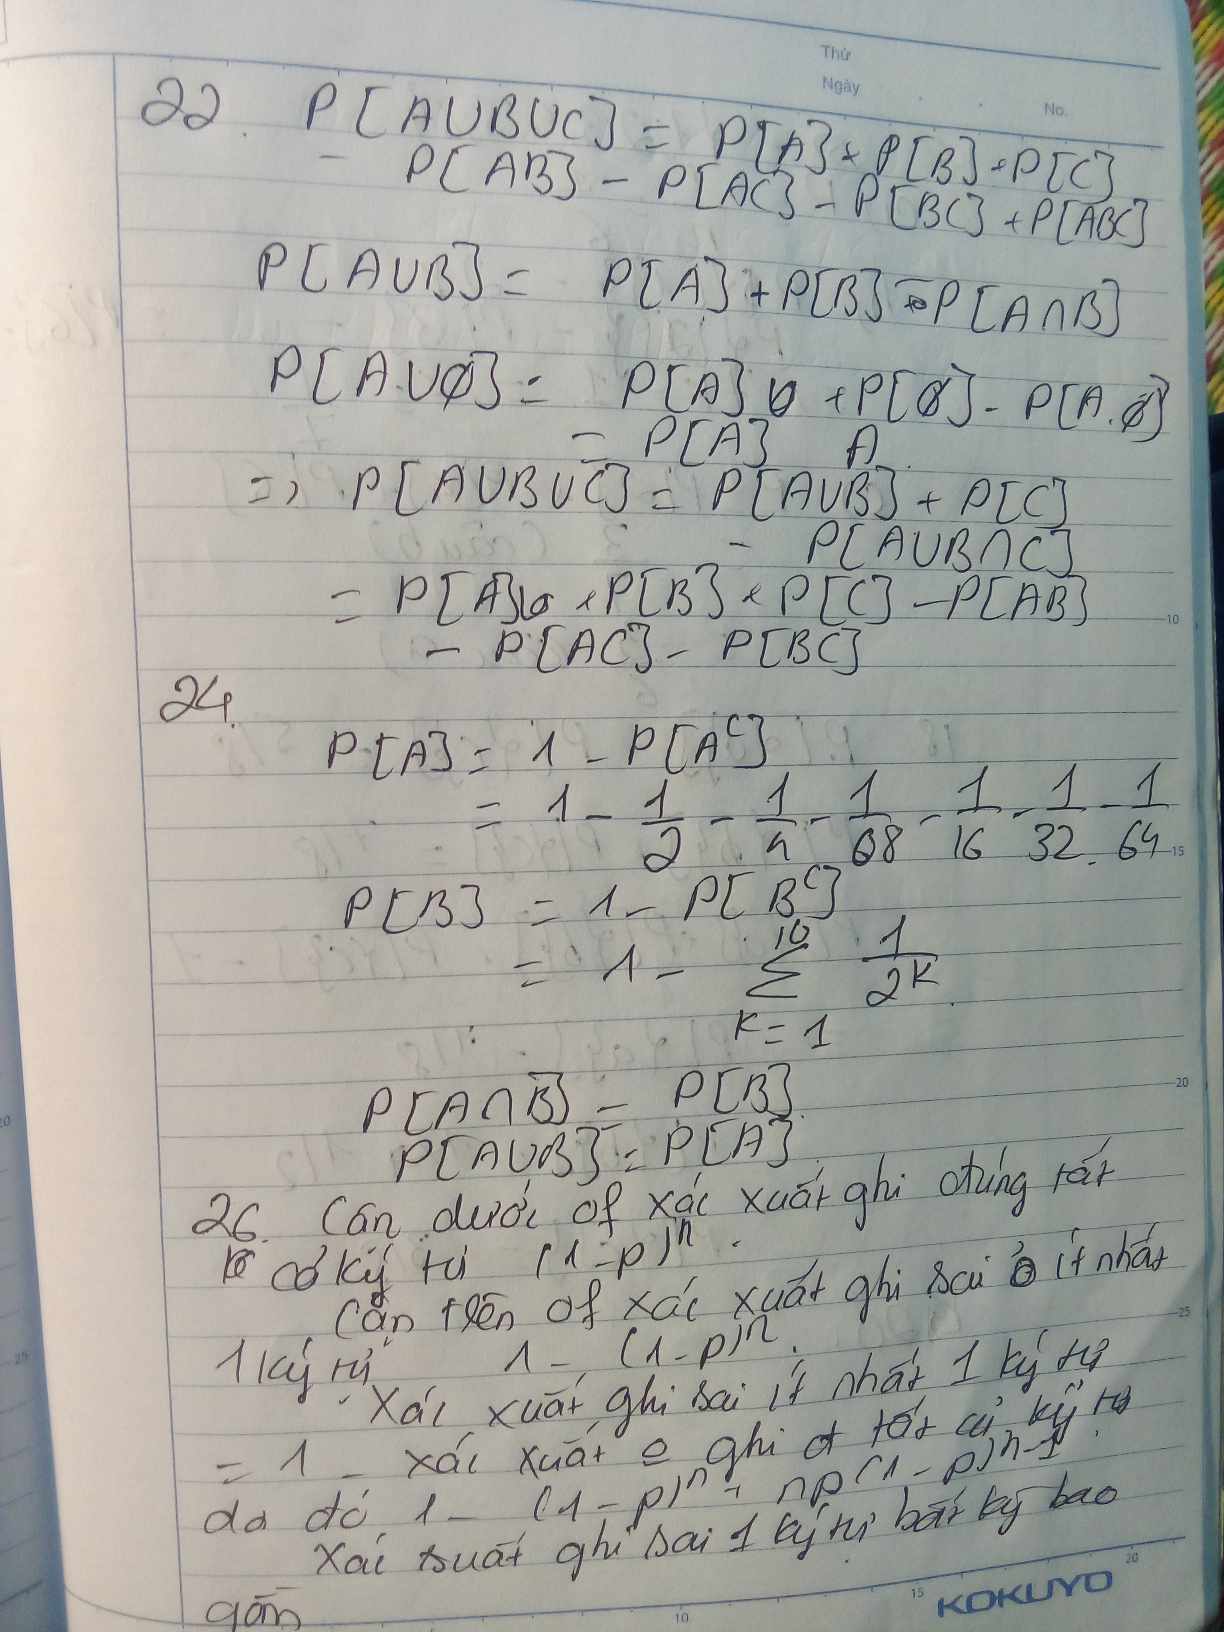 Thứ
Ngày
No.
22. P[AUBUC] = P[A] + P[B] + P[C]
- P[AB] - P[AC] - P[BC] + P[ABC]
P[AUB] = P[A] + P[B] - P[A∩B]
P[AU∅] = P[A] + P[∅] - P[A.∅]
= P[A] A
=> P[AUBUC] = P[AUB] + P[C]
- P[AUB∩C]
= P[A] + P[B] + P[C] - P[AB]
- P[AC] - P[BC]
10
24.
P[A] = 1 - P[Aᶜ]
= 1 - 1/2 - 1/4 - 1/08 - 1/16 - 1/32 - 1/64
15
P[B] = 1 - P[Bᶜ]
= 1 - 10 Σ K=1 1/2ᴷ
20
P[A∩B] = P[B]
P[AUB] = P[A]
26. Cận dưới of xác xuất ghi đúng tất
cả ký tự (1-p)ⁿ.
Cận trên of xác xuất ghi sai ít nhất
25
1 ký tự 1 - (1-p)ⁿ.
Xác xuất ghi sai ít nhất 1 ký tự
= 1 - xác xuất ghi đ tất cả ký tự
do đó 1 - (1-p)ⁿ - np(1-p)ⁿ⁻¹.
Xác suất ghi sai 1 ký tự bất kỳ bao
gồm
10
15
20
KOKUYO